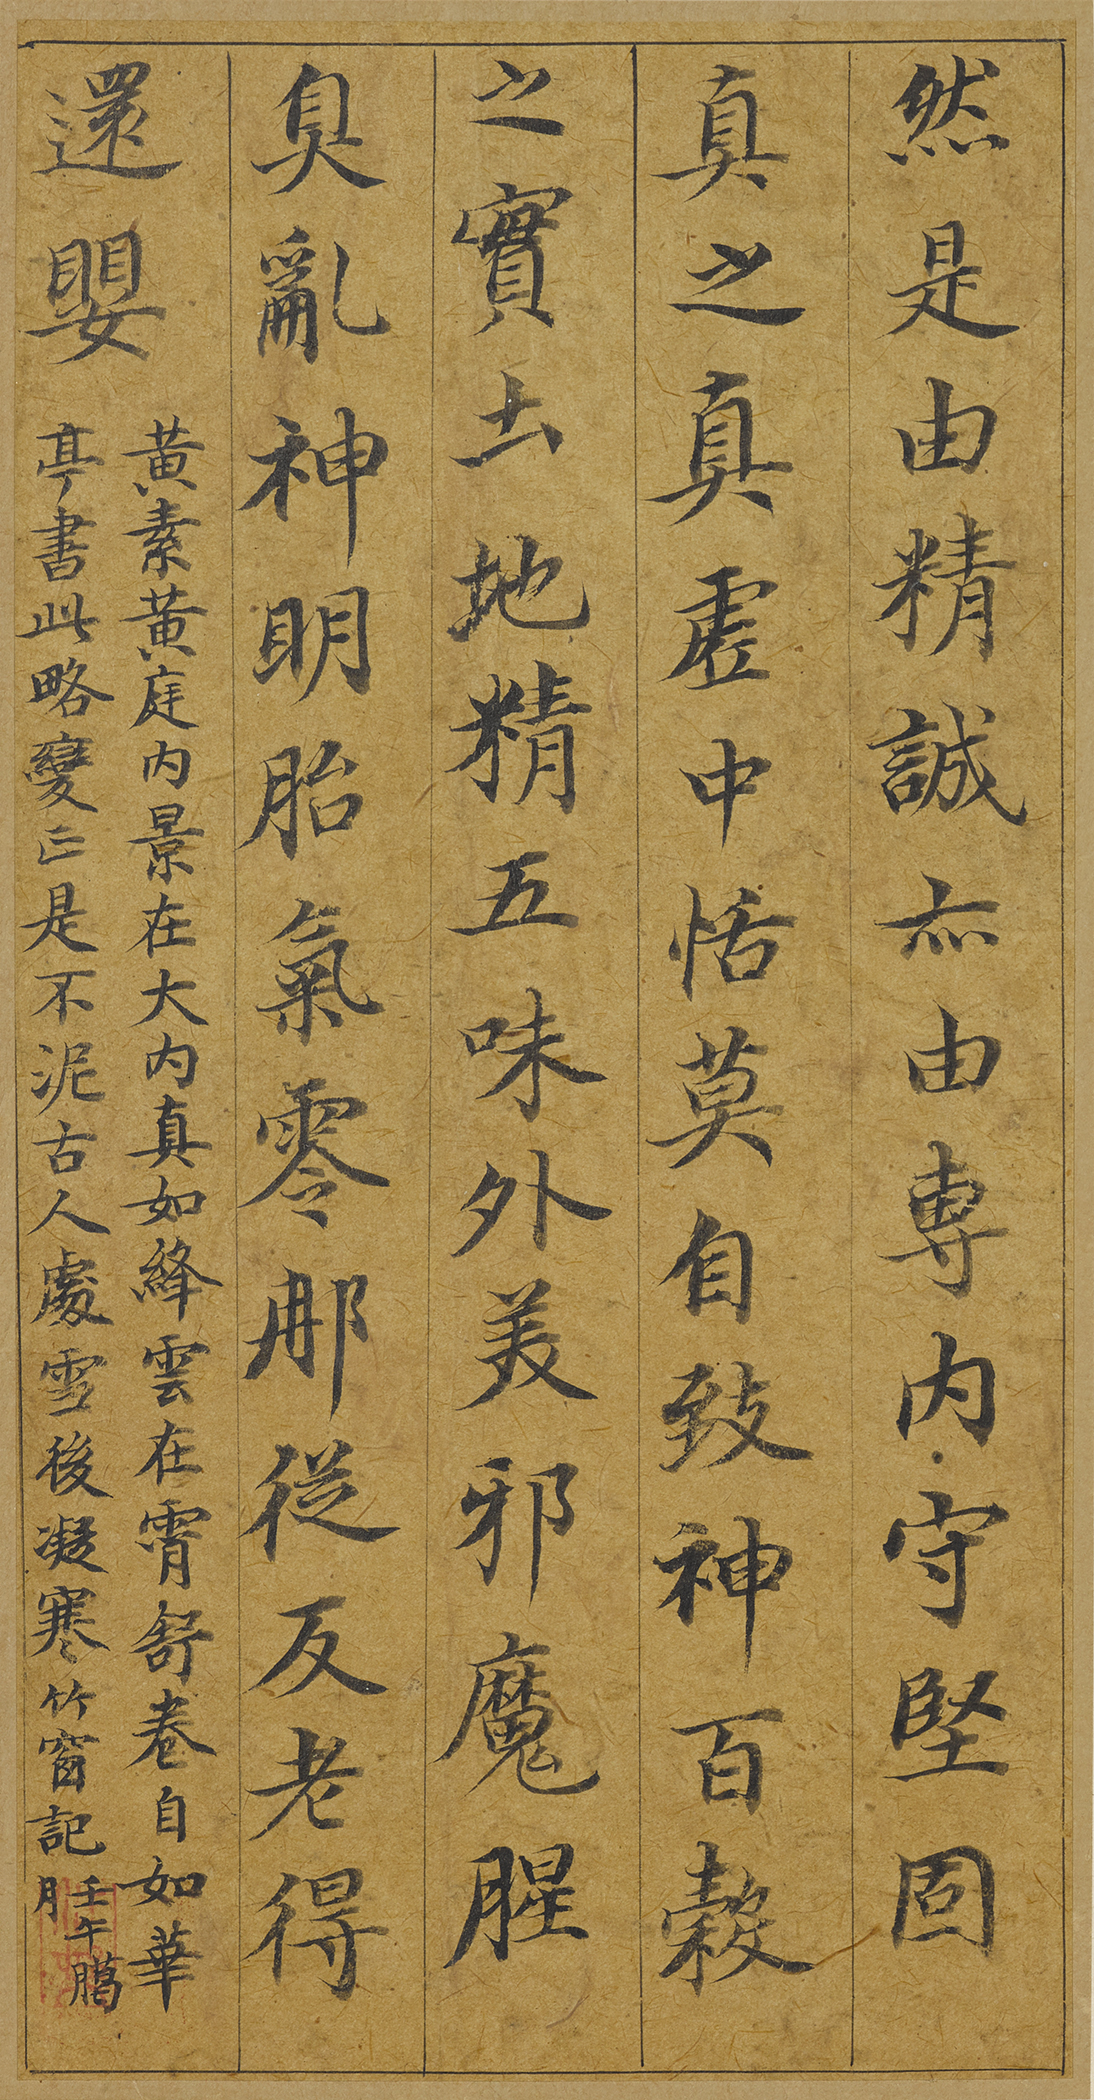 然是由精誠亦由專内守堅固
真之真虛中恬莫自致神百穀
之實土地精五味外美邪魔腥
臭亂神明胎氣零那從反老得
還嬰
黄素黄庭内景在大内真如絳雲在霄舒卷自如華
亭書此略變正是不泥古人處雪後凝寒竹窗記
壬午臈
月